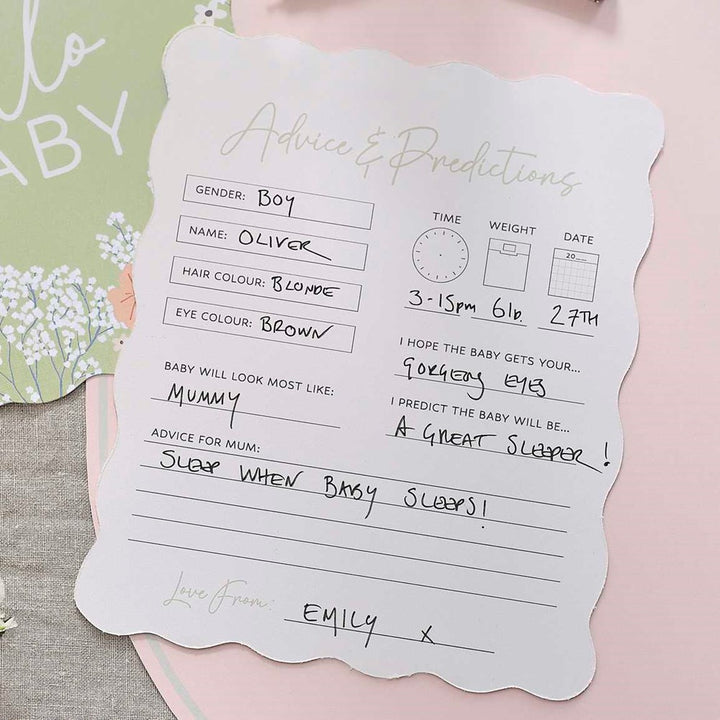 llo
ABY
Advice & Predictions
GENDER: BOY
NAME: OLIVER
HAIR COLOUR: BLONDE
EYE COLOUR: BROWN
TIME WEIGHT DATE
20
3-15pm 6lb. 27TH
BABY WILL LOOK MOST LIKE:
MUMMY
I HOPE THE BABY GETS YOUR...
GORGEOUS EYES
I PREDICT THE BABY WILL BE...
A GREAT SLEEPER!
ADVICE FOR MUM:
SLEEP WHEN BABY SLEEPS!
Love From:
EMILY x